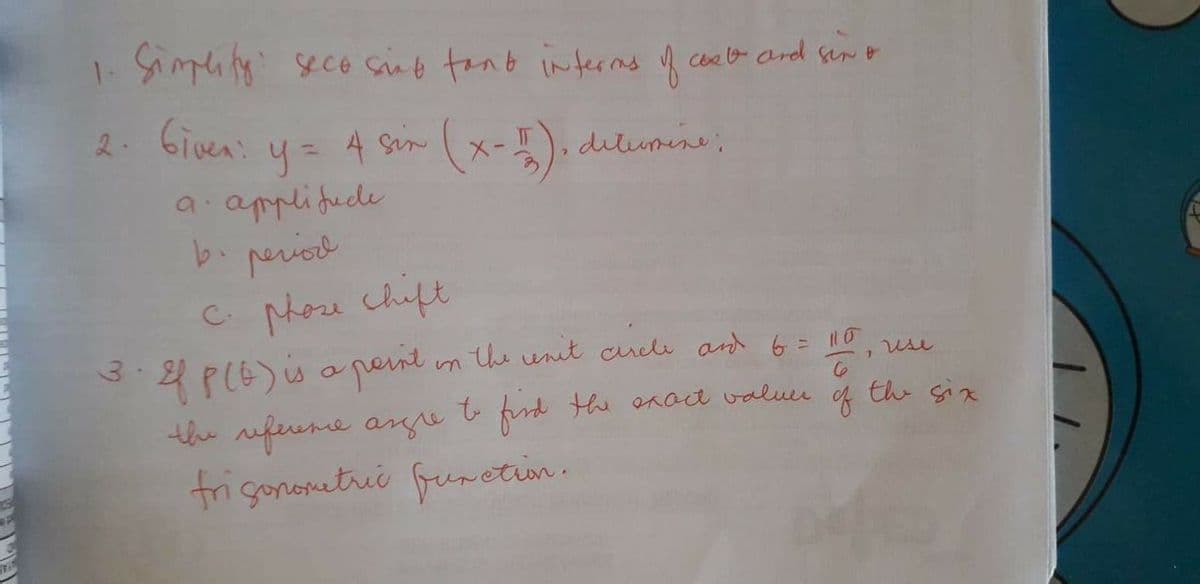 1. Simplify: sec θ sin θ tan θ in terms of cos θ and sin θ
2. Given: y = 4 sin (x - π/3), determine:
a. amplitude
b. period
c. phase shift
3. If P(θ) is a point on the unit circle and θ = 11π/6, use
the reference angle to find the exact values of the six
trigonometric function.